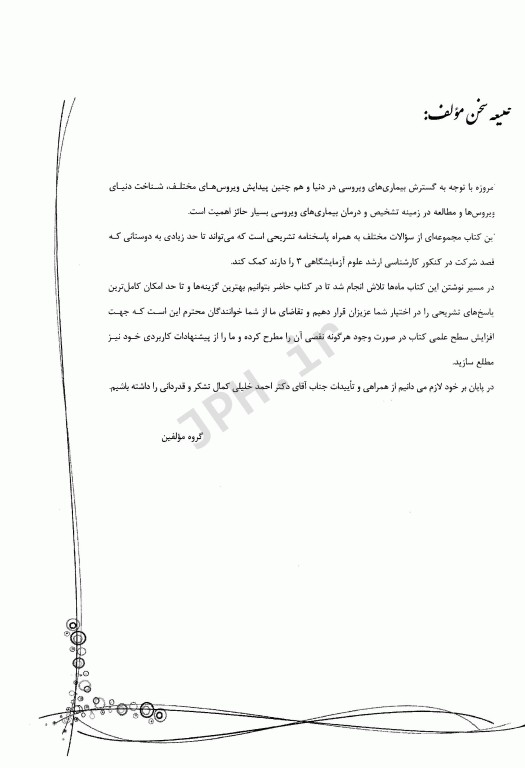 طلیعه سخن مؤلف:
امروزه با توجه به گسترش بیماری‌های ویروسی در دنیا و هم چنین پیدایش ویروس‌های مختلف، شناخت دنیای
ویروس‌ها و مطالعه در زمینه تشخیص و درمان بیماری‌های ویروسی بسیار حائز اهمیت است.
این کتاب مجموعه‌ای از سؤالات مختلف به همراه پاسخنامه تشریحی است که می‌تواند تا حد زیادی به دوستانی که
قصد شرکت در کنکور کارشناسی ارشد علوم آزمایشگاهی ۳ را دارند کمک کند.
در مسیر نوشتن این کتاب ماه‌ها تلاش انجام شد تا در کتاب حاضر بتوانیم بهترین گزینه‌ها و تا حد امکان کامل‌ترین
پاسخ‌های تشریحی را در اختیار شما عزیزان قرار دهیم و تقاضای ما از شما خوانندگان محترم این است که جهت
افزایش سطح علمی کتاب در صورت وجود هرگونه نقصی آن را مطرح کرده و ما را از پیشنهادات کاربردی خود نیز
مطلع سازید.
در پایان بر خود لازم می دانیم از همراهی و تأییدات جناب آقای دکتر احمد خلیلی کمال تشکر و قدردانی را داشته باشیم.
گروه مؤلفین
JPH.ir